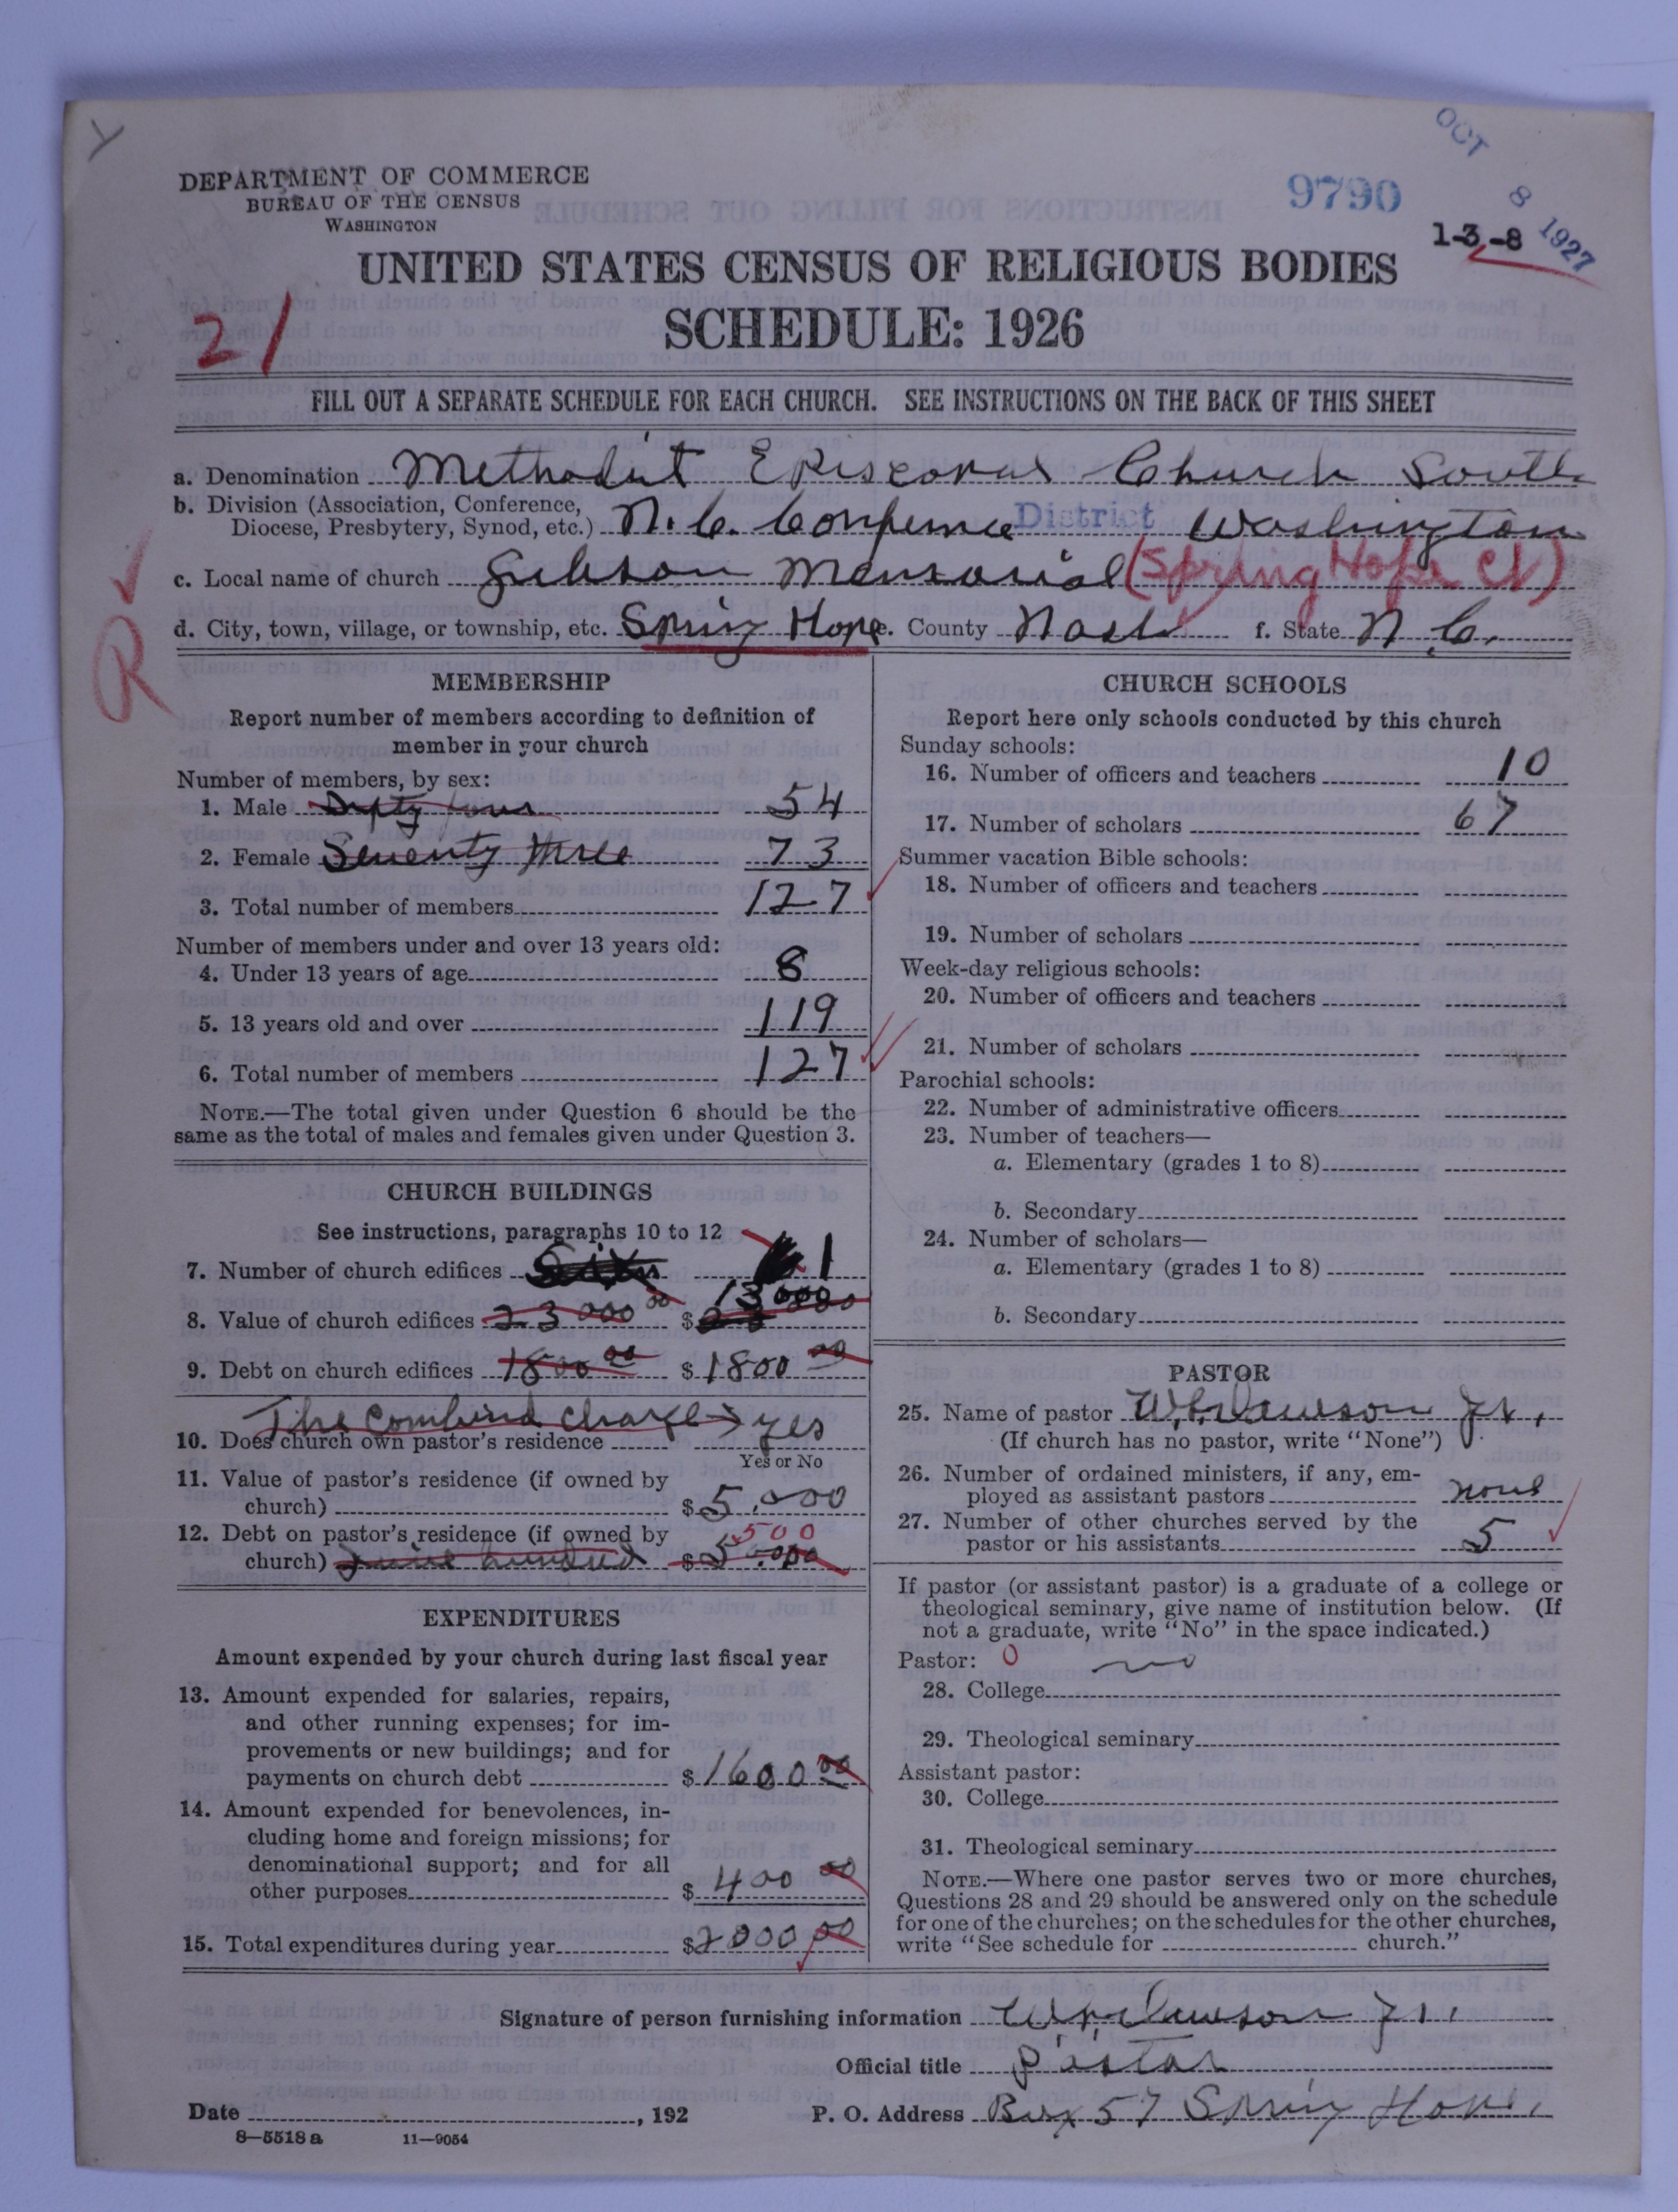 OCT 8 1927
9790
1-3-8
DEPARTMENT OF COMMERCE
BUREAU OF THE CENSUS
WASHINGTON
UNITED STATES CENSUS OF RELIGIOUS BODIES
SCHEDULE: 1926
21
FILL OUT A SEPARATE SCHEDULE FOR EACH CHURCH. SEE INSTRUCTIONS ON THE BACK OF THIS SHEET
a. Denomination Methodist Episcopal Church South
b. Division (Association, Conference,
Diocese, Presbytery, Synod, etc.) N.C. Conference District Washington
c. Local name of church Gibson Memorial (Spring Hope Ct)
d. City, town, village, or township, etc. Spring Hope e. County Nash f. State N.C.
R
MEMBERSHIP
Report number of members according to definition of
member in your church
Number of members, by sex:
1. Male Fifty four 54
2. Female Seventy three 73
3. Total number of members 127
Number of members under and over 13 years old:
4. Under 13 years of age 8
5. 13 years old and over 119
6. Total number of members 127
NOTE.—The total given under Question 6 should be the
same as the total of males and females given under Question 3.
CHURCH BUILDINGS
See instructions, paragraphs 10 to 12
7. Number of church edifices Six 1
8. Value of church edifices 23000 00 $ 13000
9. Debt on church edifices 1800 00 $ 1800 00
The combined charge → yes
10. Does church own pastor's residence
Yes or No
11. Value of pastor's residence (if owned by
church) $ 5,000
12. Debt on pastor's residence (if owned by
church) hundred $ 500
EXPENDITURES
Amount expended by your church during last fiscal year
13. Amount expended for salaries, repairs,
and other running expenses; for im-
provements or new buildings; and for
payments on church debt $ 1600 00
14. Amount expended for benevolences, in-
cluding home and foreign missions; for
denominational support; and for all
other purposes $ 400 00
15. Total expenditures during year $ 2000 00
CHURCH SCHOOLS
Report here only schools conducted by this church
Sunday schools:
16. Number of officers and teachers 10
17. Number of scholars 67
Summer vacation Bible schools:
18. Number of officers and teachers
19. Number of scholars
Week-day religious schools:
20. Number of officers and teachers
21. Number of scholars
Parochial schools:
22. Number of administrative officers
23. Number of teachers—
a. Elementary (grades 1 to 8)
b. Secondary
24. Number of scholars—
a. Elementary (grades 1 to 8)
b. Secondary
PASTOR
25. Name of pastor Dawson Jr.
(If church has no pastor, write "None")
26. Number of ordained ministers, if any, em-
ployed as assistant pastors none
27. Number of other churches served by the
pastor or his assistants 5
If pastor (or assistant pastor) is a graduate of a college or
theological seminary, give name of institution below. (If
not a graduate, write "No" in the space indicated.)
Pastor: 0 no
28. College
29. Theological seminary
Assistant pastor:
30. College
31. Theological seminary
NOTE.—Where one pastor serves two or more churches,
Questions 28 and 29 should be answered only on the schedule
for one of the churches; on the schedules for the other churches,
write "See schedule for church."
Signature of person furnishing information Dawson Jr.
Official title Pastor
Date , 192
P. O. Address Box 57 Spring Hope,
8—5518 a 11—9054